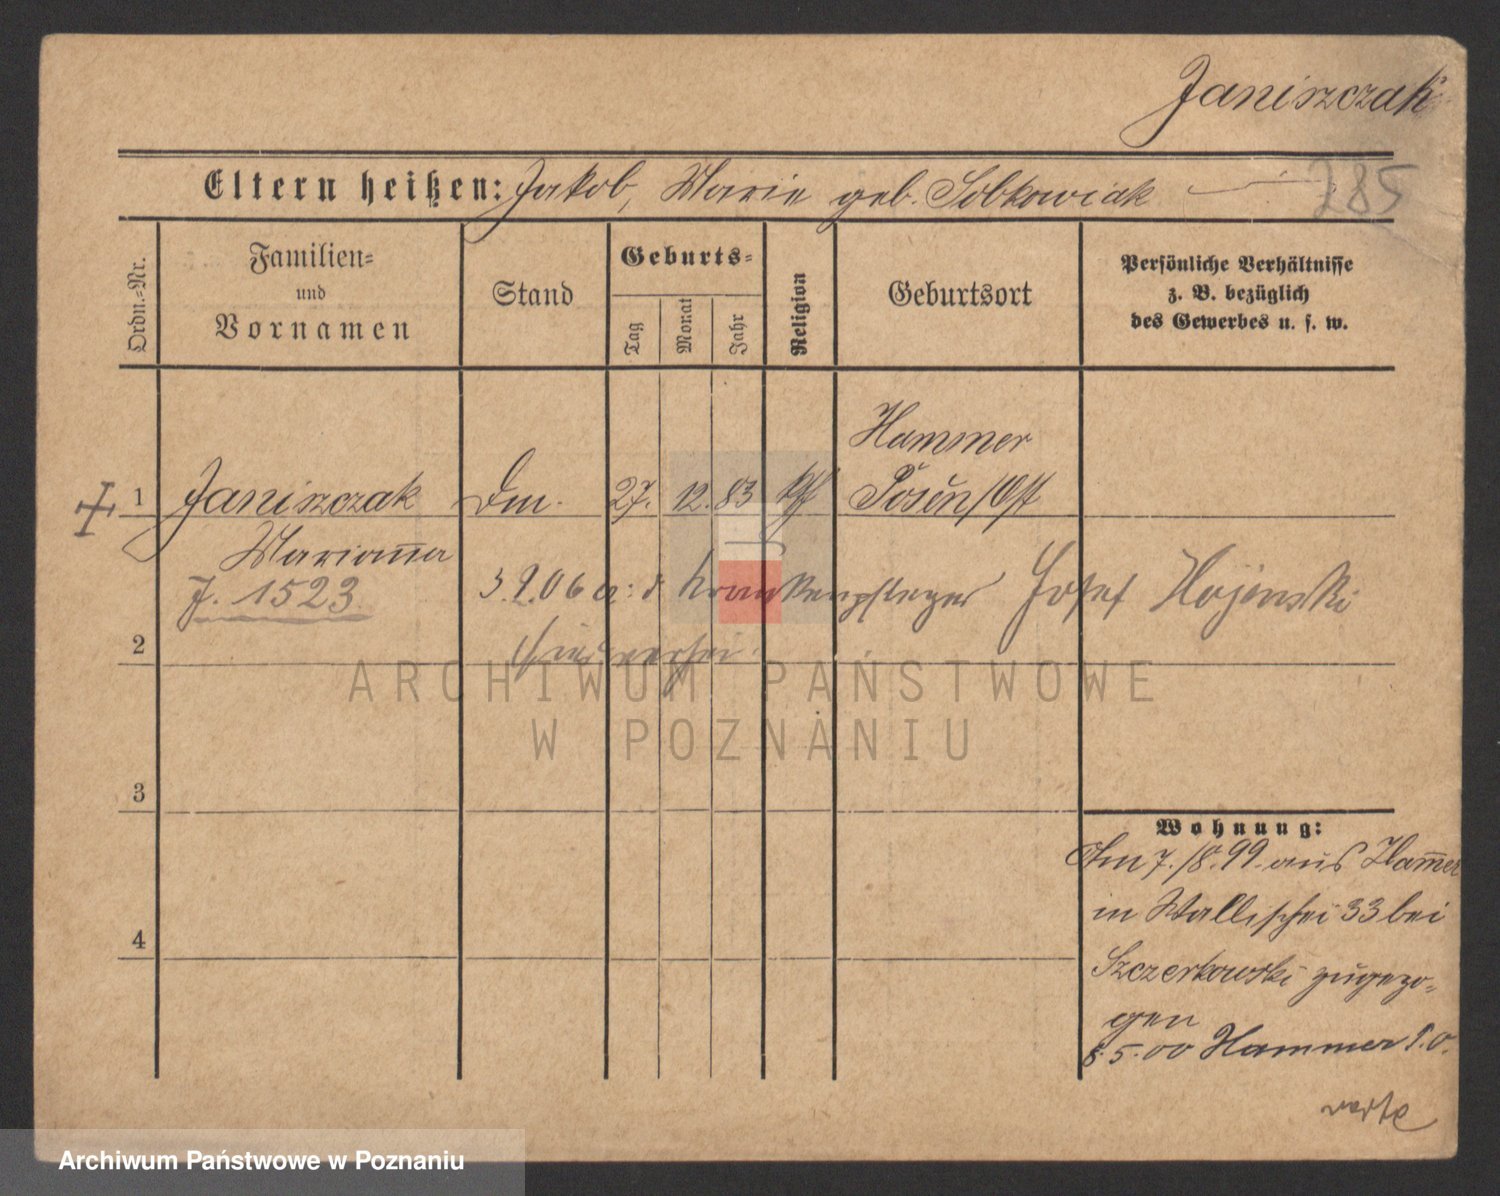 Janiszczak
285
Eltern heißen: Jakob, Marie geb. Sobkowiak
Ordn.=Nr.
Familien=
und
Vornamen
Stand
Geburts=
Tag
Monat
Jahr
Religion
Geburtsort
Persönliche Verhältnisse
z. B. bezüglich
des Gewerbes u. s. w.
Hammer
1 Janiszczak 27. 12. 83 Posen/Ost
Marianna
J. 1523
3.9.06 Krankenpfleger Josef
2
ARCHIWUM PAŃSTWOWE
W POZNANIU
3
Wohnung:
Am 7./8.99. aus Ham̅er
in Wallischei 33 bei
Szczerkowski zugezo=
gen
8.5.00 Hammer P.O.
4
Archiwum Państwowe w Poznaniu